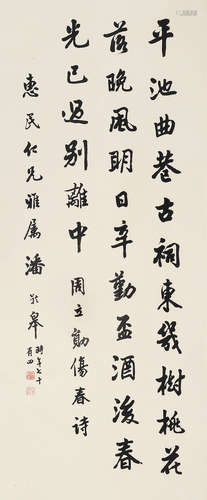 平池曲巷古祠東幾樹桃花
落晚風明日辛勤盃酒後春
光已過別離中 周立勛傷春詩
惠民仁兄雅屬 潘齡皋 時年七十有四